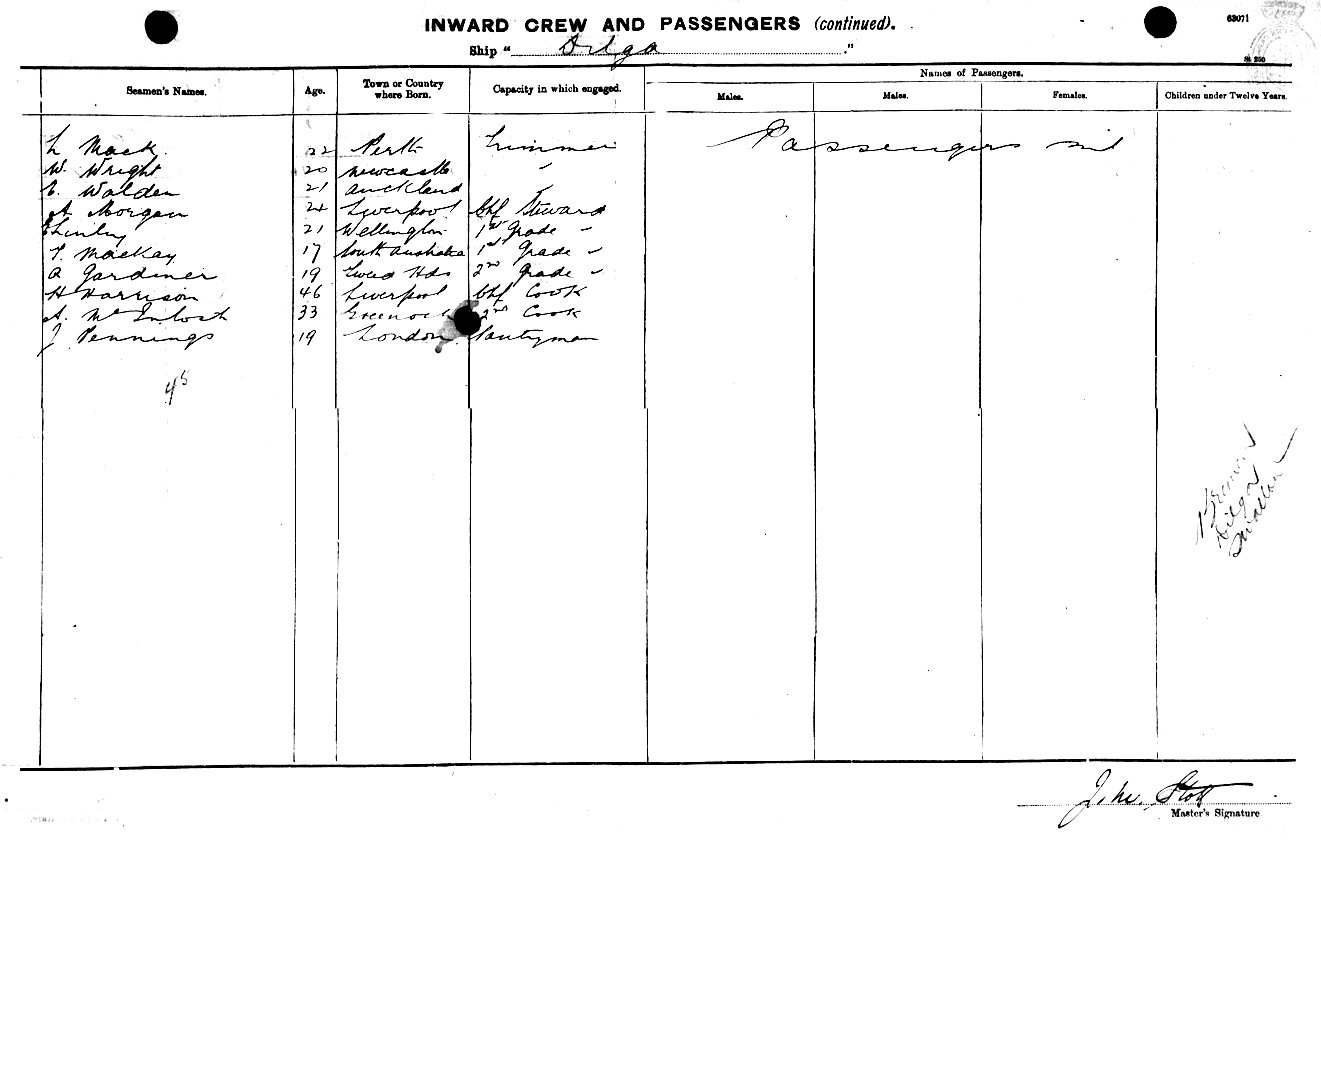 INWARD CREW AND PASSENGERS (continued).
63071
Ship " Dilga ."
St 250
Seamen's Names. Age. Town or Country where Born. Capacity in which engaged. Names of Passengers.
Males. Males. Females. Children under Twelve Years.
L Mack. 22 Perth Trimmer Passengers nil
W. Wright 20 Newcastle "
Walden 21 Auckland "
A Morgan 24 Liverpool Chf Steward
21 Wellington 1st Grade "
T. MacKay 17 South Australia 1st Grade "
A Gardiner 19 Tweed Hds 2nd Grade "
H Harrison 46 Liverpool Chf Cook
A. McIntosh 33 Greenock 2nd Cook
J Pennings 19 London Pantryman
45
Dilga
Stott
Master's Signature